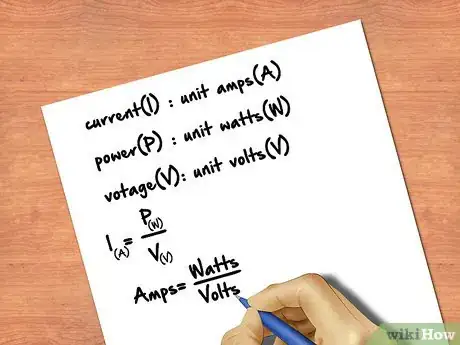 current(I) : unit amps(A)
power(P) : unit watts(W)
votage(V): unit volts(V)
I(A)= P(W)
V(V)
Amps= Watts
Volts
wikiHow